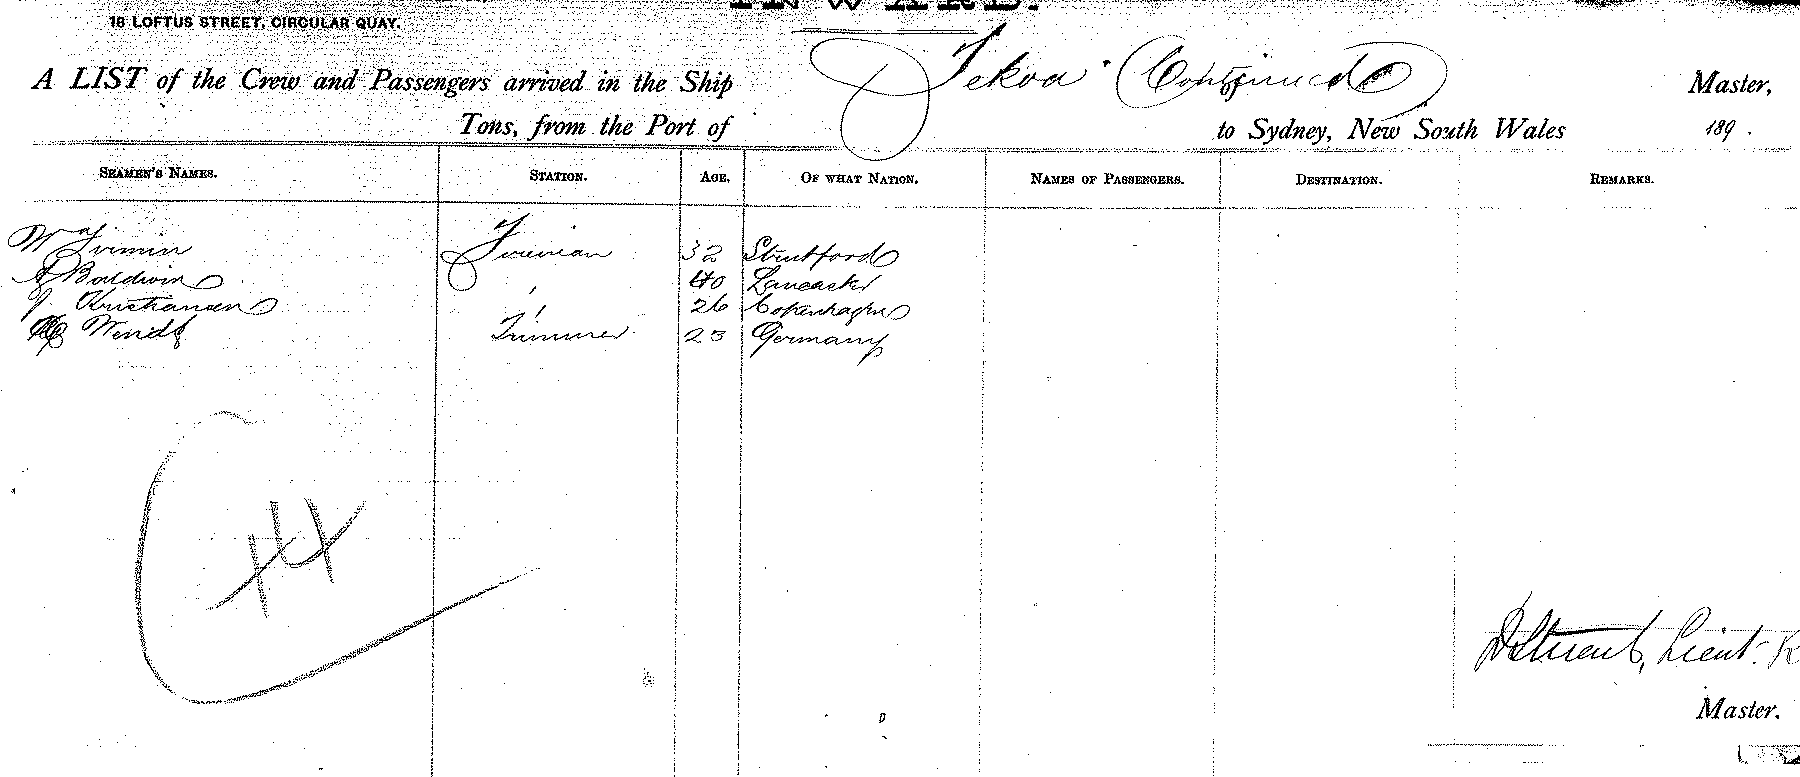 INWARD.
18 LOFTUS STREET, CIRCULAR QUAY.
A LIST of the Crew and Passengers arrived in the Ship Tekoa (Continued) Master,
Tons, from the Port of to Sydney, New South Wales 189 .
SEAMEN'S NAMES. STATION. AGE. OF WHAT NATION. NAMES OF PASSENGERS. DESTINATION. REMARKS.
Wm Fireman 32 Stratford
A Baldwin " 40 Lancaster
J Christiansen " 26 Copenhagen
Wendt Trimmer 23 Germany
44
Lieut. R
Master.